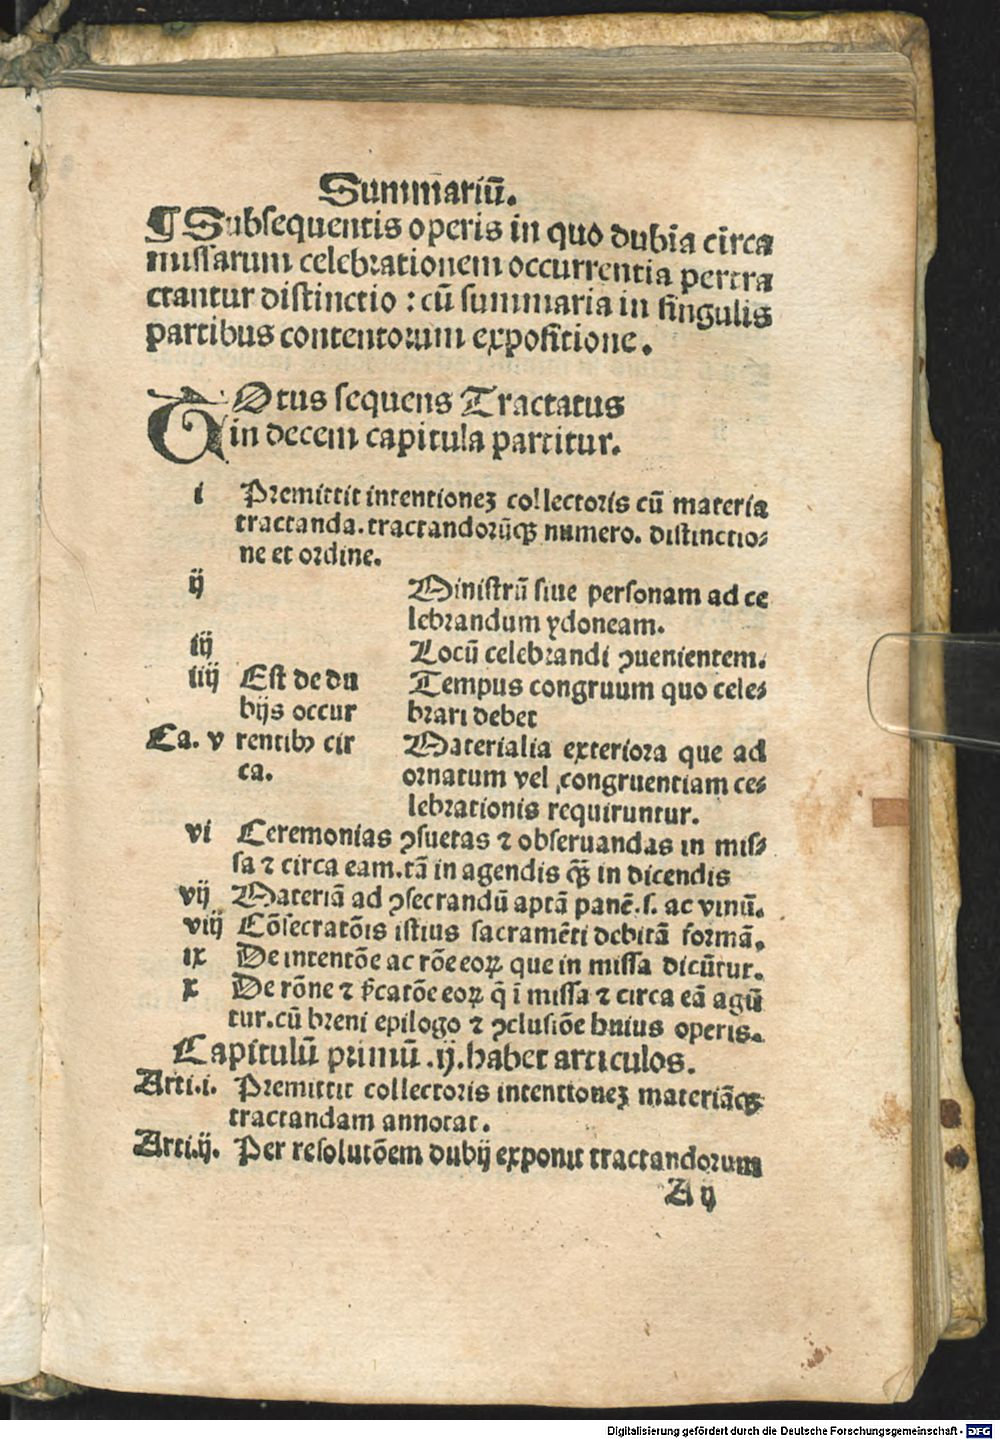 Summariū.
¶ Subsequentis operis in quo dubia circa
missarum celebrationem occurrentia pertra
ctantur distinctio : cū summaria in singulis
partibus contentorum expositione.
TOtus sequens Tractatus
in decem capitula partitur.
i Premittit intentioneꝫ collectoris cū materia
tractanda. tractandorūqꝫ numero. distinctio⸗
ne et ordine.
ij Ministrū siue personam ad ce
lebrandum ydoneam.
iij Locū celebrandi ꝯuenientem.
iiij Est de du Tempus congruum quo cele⸗
bijs occur brari debet
Ca. v rentibꝰ cir Materialia exteriora que ad
ca. ornatum vel congruentiam ce⸗
lebrationis requiruntur.
vi Ceremonias ꝯsuetas ⁊ obseruandas in mis⸗
sa ⁊ circa eam. tā in agendis qꝫ̄ in dicendis
vij Materiā ad ꝯsecrandū aptā panē. s. ac vinū.
viij Cōsecratōis istius sacramēti debitā formā.
ix De intentōe ac rōe eoꝝ que in missa dicūtur.
x De rōne ⁊ sīcatōe eoꝝ q̄ ī missa ⁊ circa eā agū
tur. cū breui epilogo ⁊ ꝯclusiōe huius operis.
Capitulū primū .ij. habet articulos.
Arti. i. Premittit collectoris intentioneꝫ materiāqꝫ
tractandam annotat.
Arti. ij. Per resolutōem dubij exponit tractandorum
A ij
Digitalisierung gefördert durch die Deutsche Forschungsgemeinschaft - DFG